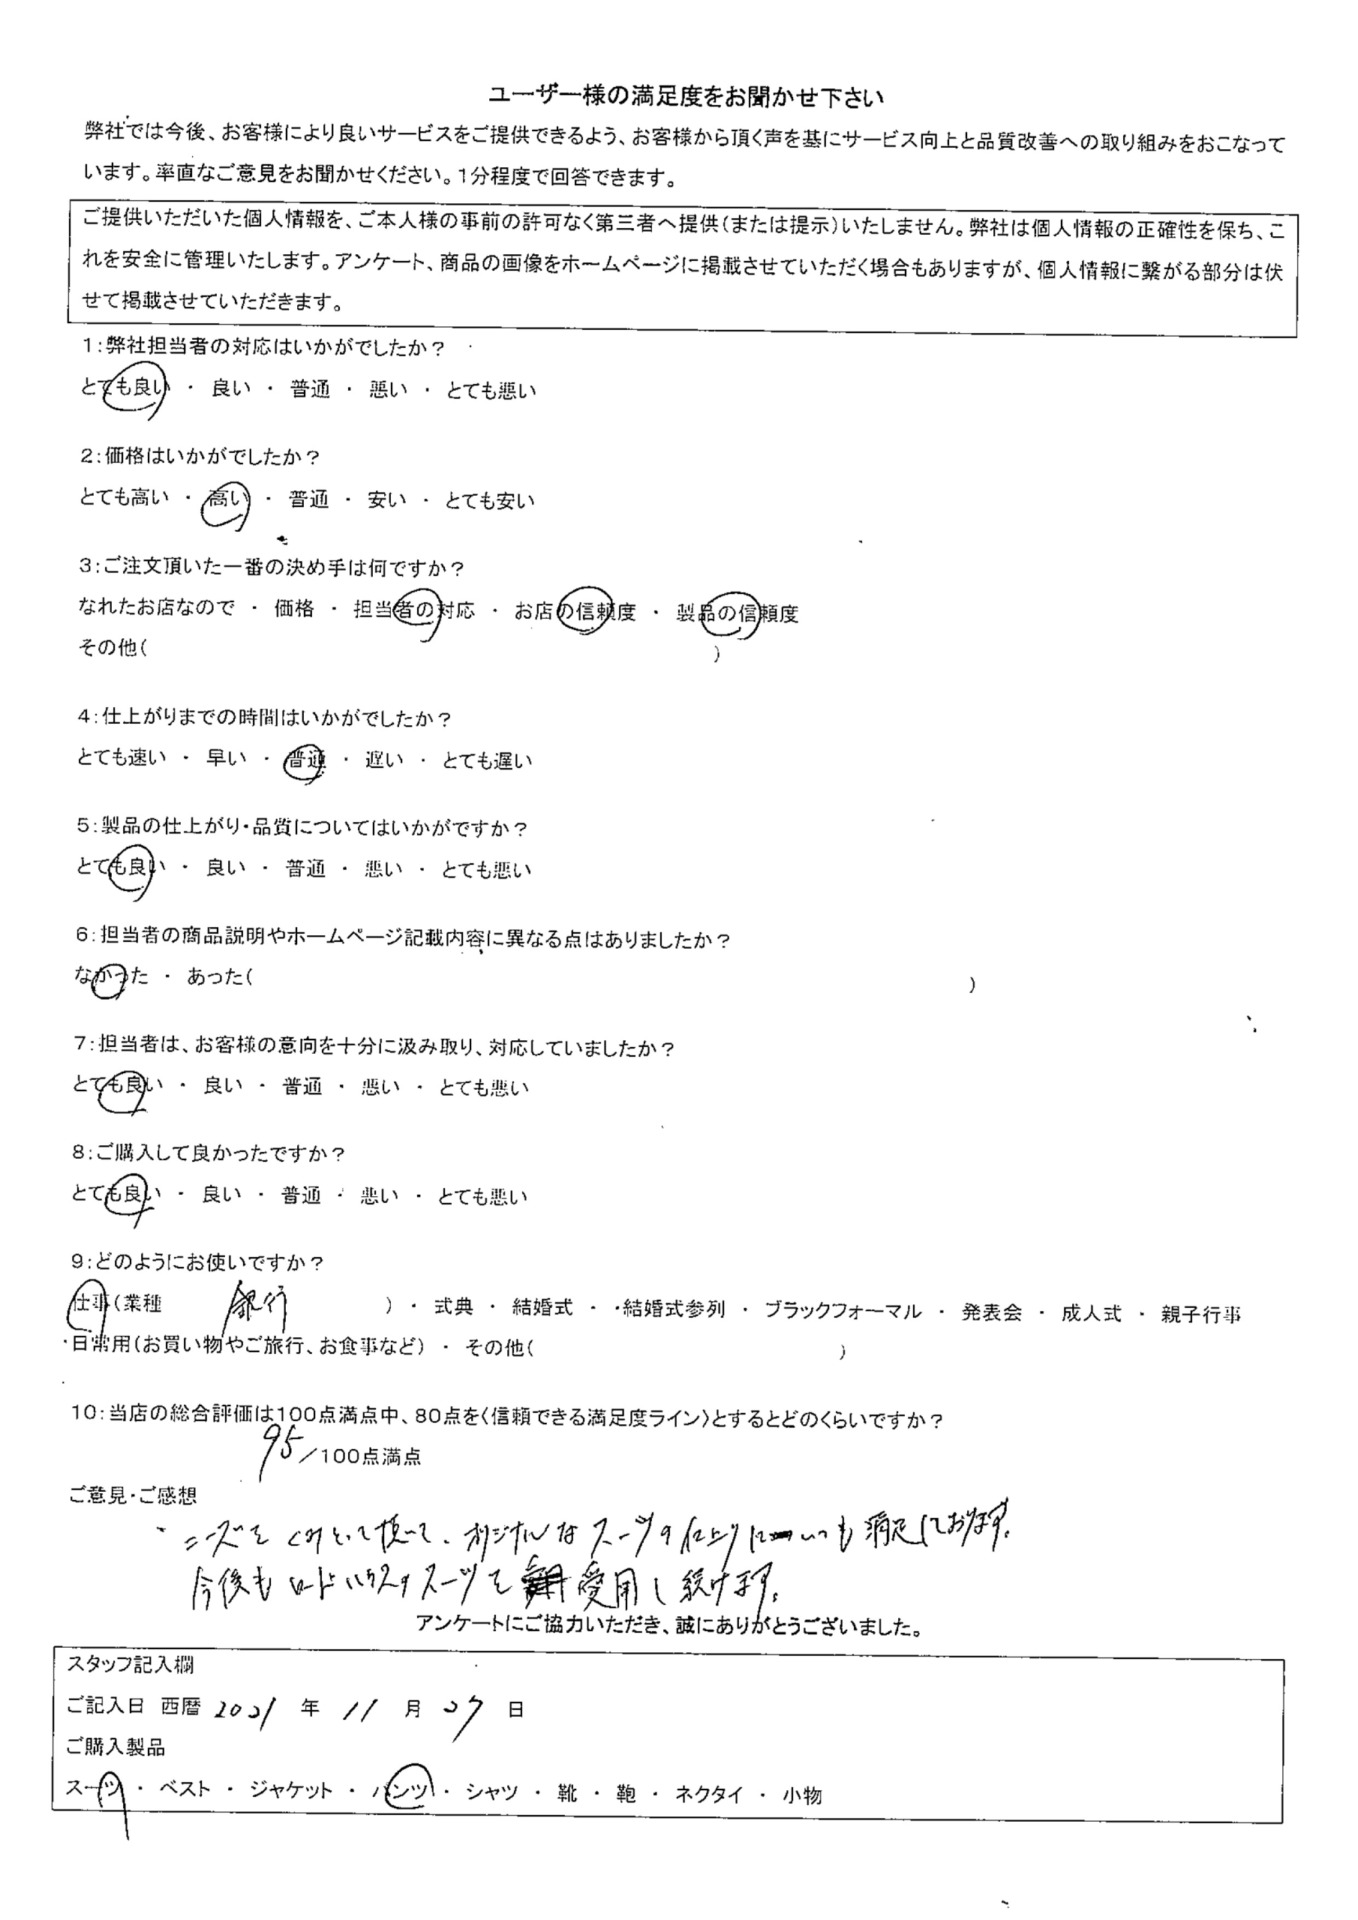 ユーザー様の満足度をお聞かせ下さい
弊社では今後、お客様により良いサービスをご提供できるよう、お客様から頂く声を基にサービス向上と品質改善への取り組みをおこなって
います。率直なご意見をお聞かせください。1分程度で回答できます。
ご提供いただいた個人情報を、ご本人様の事前の許可なく第三者へ提供(または提示)いたしません。弊社は個人情報の正確性を保ち、こ
れを安全に管理いたします。アンケート、商品の画像をホームページに掲載させていただく場合もありますが、個人情報に繋がる部分は伏
せて掲載させていただきます。
1:弊社担当者の対応はいかがでしたか?
とても良い ・ 良い ・ 普通 ・ 悪い ・ とても悪い
2:価格はいかがでしたか?
とても高い ・ 高い ・ 普通 ・ 安い ・ とても安い
3:ご注文頂いた一番の決め手は何ですか?
なれたお店なので ・ 価格 ・ 担当者の対応 ・ お店の信頼度 ・ 製品の信頼度
その他( )
4:仕上がりまでの時間はいかがでしたか?
とても速い ・ 早い ・ 普通 ・ 遅い ・ とても遅い
5:製品の仕上がり・品質についてはいかがですか?
とても良い ・ 良い ・ 普通 ・ 悪い ・ とても悪い
6:担当者の商品説明やホームページ記載内容に異なる点はありましたか?
なかった ・ あった( )
7:担当者は、お客様の意向を十分に汲み取り、対応していましたか?
とても良い ・ 良い ・ 普通 ・ 悪い ・ とても悪い
8:ご購入して良かったですか?
とても良い ・ 良い ・ 普通 ・ 悪い ・ とても悪い
9:どのようにお使いですか?
仕事(業種 銀行 ) ・ 式典 ・ 結婚式 ・ ・結婚式参列 ・ ブラックフォーマル ・ 発表会 ・ 成人式 ・ 親子行事
・日常用(お買い物やご旅行、お食事など) ・ その他( )
10:当店の総合評価は100点満点中、80点を〈信頼できる満足度ライン〉とするとどのくらいですか?
95/100点満点
ご意見・ご感想
ニーズをくみとって頂いて、オリジナルなスーツの仕上りにいつも満足しております。
今後もロードハウスのスーツを愛用し続けます。
アンケートにご協力いただき、誠にありがとうございました。
スタッフ記入欄
ご記入日 西暦 2021 年 11 月 27 日
ご購入製品
スーツ ・ ベスト ・ ジャケット ・ パンツ ・ シャツ ・ 靴 ・ 鞄 ・ ネクタイ ・ 小物